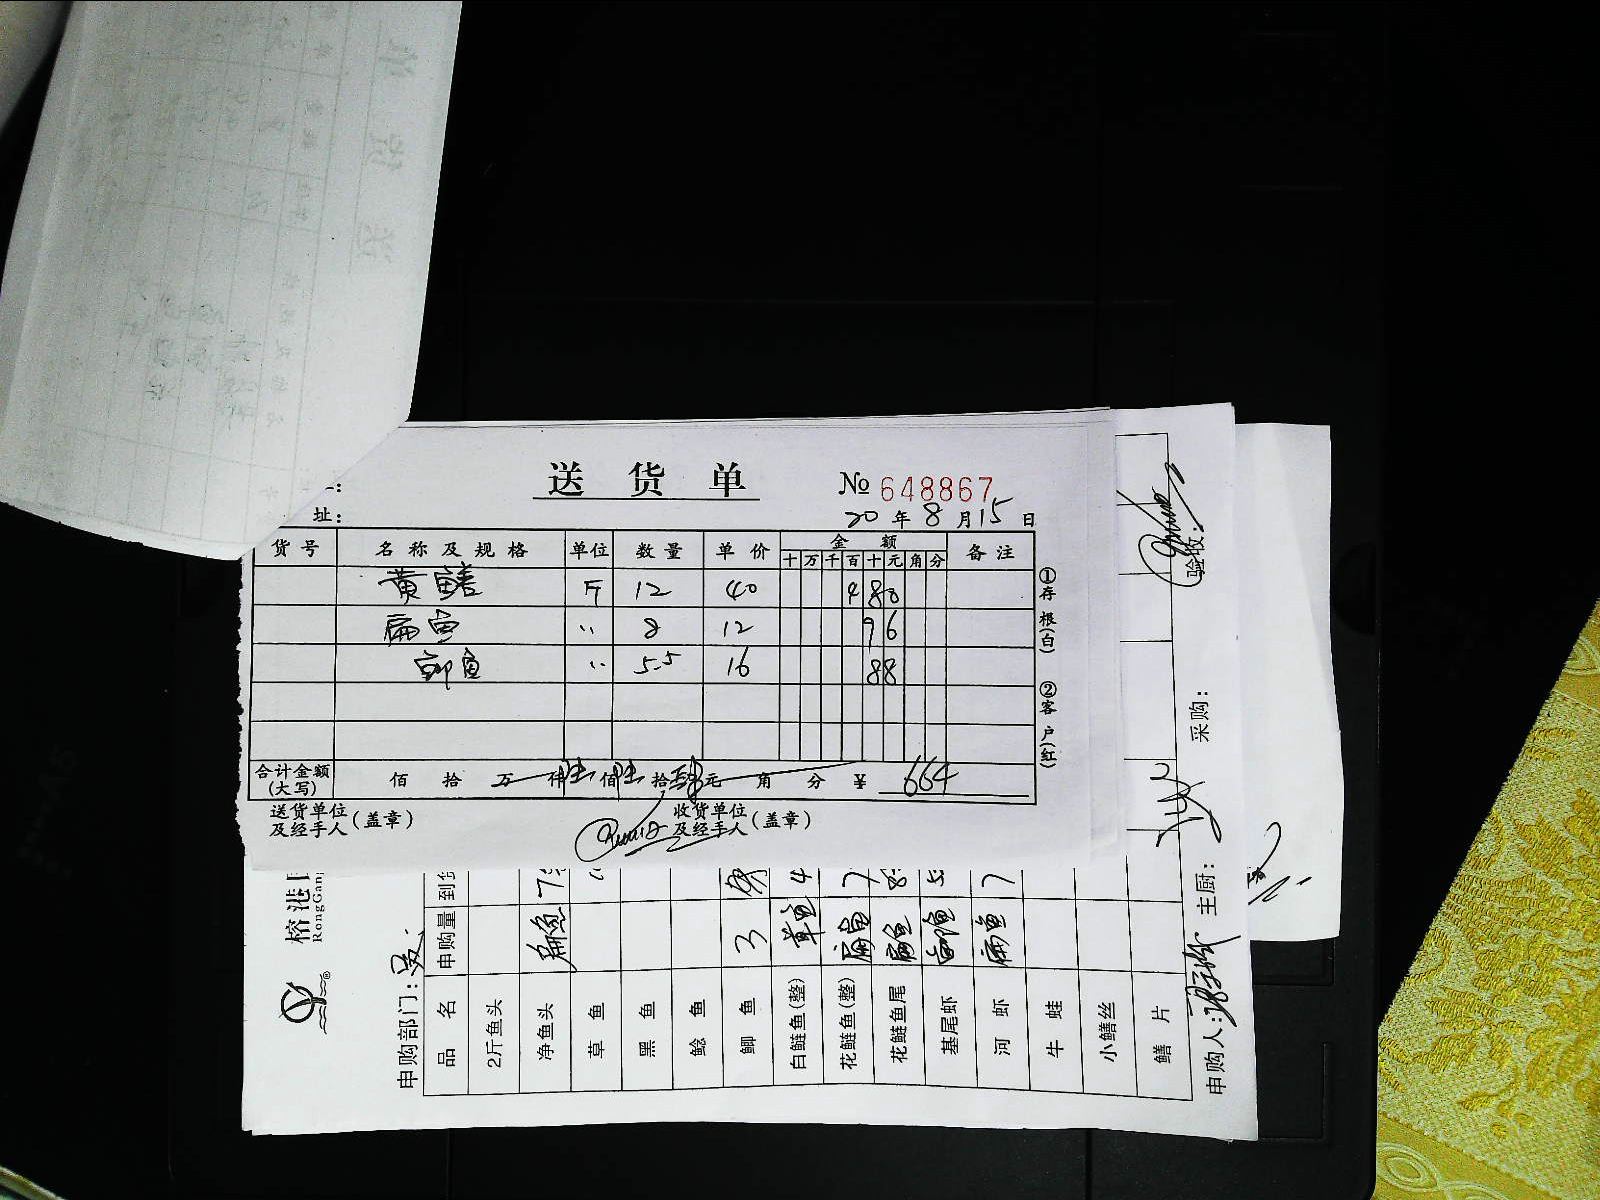 送货单 № 648867
址: 20年8月15日
货号 名称及规格 单位 数量 单价 金额 备注
十 万 千 百 十 元 角 分
黄鳝 斤 12 40 480
扁鱼 〃 8 12 96
鲫鱼 〃 5.5 16 88
合计金额(大写) 佰 拾 万 仟陆佰陆拾肆元 角 分 ¥ 664
送货单位及经手人(盖章) 收货单位及经手人(盖章)
①存根(白)
②客户(红)
榕港
RongGang
®
申购部门:
品名 申购量
2斤鱼头
净鱼头 扁鱼
草鱼
黑鱼
鲶鱼
鲫鱼 3
白鲢鱼(整) 草鱼 4
花鲢鱼(整) 扁鱼 7
花鲢鱼尾 扁鱼
基尾虾 鲫鱼
河虾 扁鱼 7
牛蛙
小鳝丝
鳝片
申购人: 主厨: 采购: 验收: